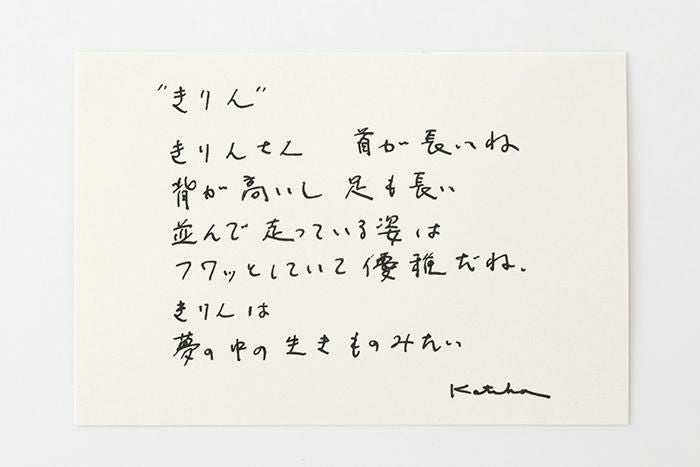 "きりん"
きりんさん 首が長いね
背が高いし 足も長い
並んで走っている姿は
フワッとしていて優雅だね.
きりんは
夢の中の生きものみたい